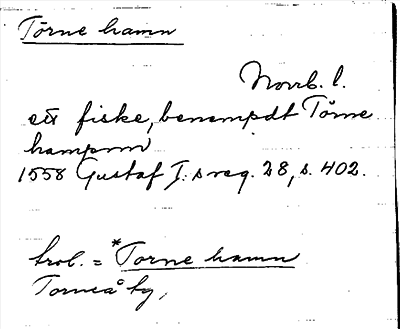 Törne hamn
Norrb. l.
ett fiske, benempdt Törne
hampnn
1558 Gustaf I:s reg. 28, s. 402.
trol. = *Torne hamn
Torneå by,